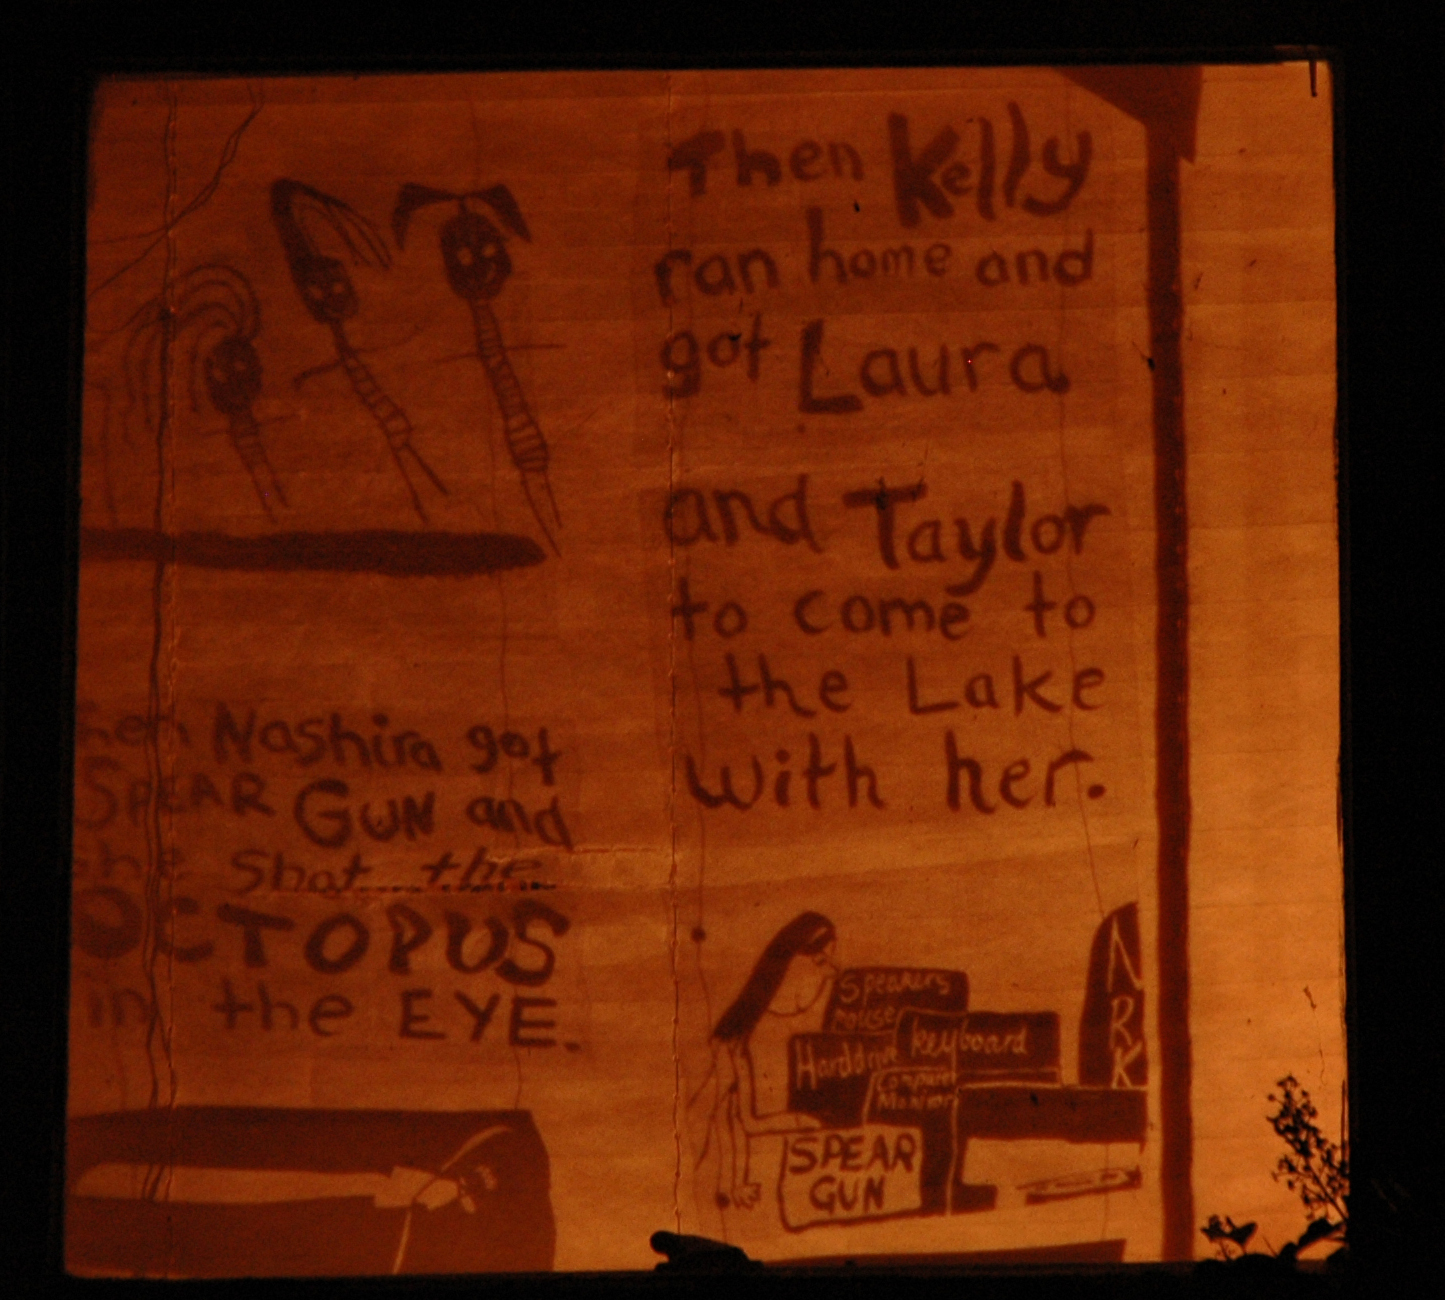 Then Kelly
ran home and
got Laura
and Taylor
to come to
the Lake
with her.
Nashira got
SPEAR GUN and
she shot the
OCTOPUS
in the EYE.
Speakers
mouse
Harddrive
keyboard
Computer
Monitor
SPEAR
GUN
NRK